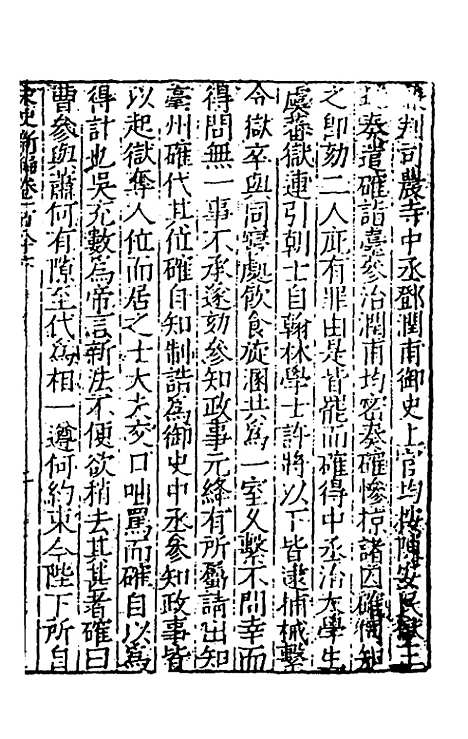 判司農寺中丞鄧潤甫御史上官均按陳安民獄
奏遣確詣臺參治潤甫均密奏確慘掠諸囚確伺知
之即劾二人庇有罪由是皆罷而確得中丞治太學生
虞蕃獄連引朝士自翰林學士許將以下皆逮捕械繫
令獄卒與同寢處飲食旋溷共為一室久繫不問幸而
得問無一事不承遂劾參知政事元絳有所屬請出知
亳州確代其位確自知制誥為御史中丞參知政事皆
以起獄奪人位而居之士大夫交口咄罵而確自以為
得計也吳充數為帝言新法不便欲稍去其甚者確曰
曹參與蕭何有隙至代為相一遵何約束今陛下所自
宋史新編卷一百八十六